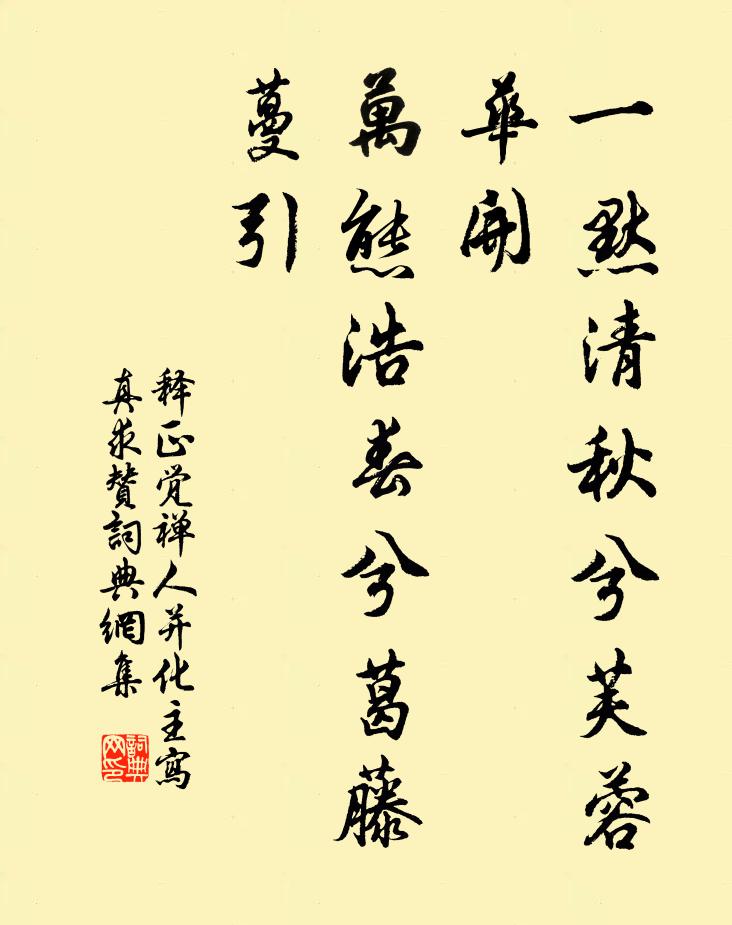 一點清秋兮芙蓉
華開
萬態浩春兮葛藤
蔓引
释正觉禅人并化主寫
真求赞詞典網集
詞典
网印